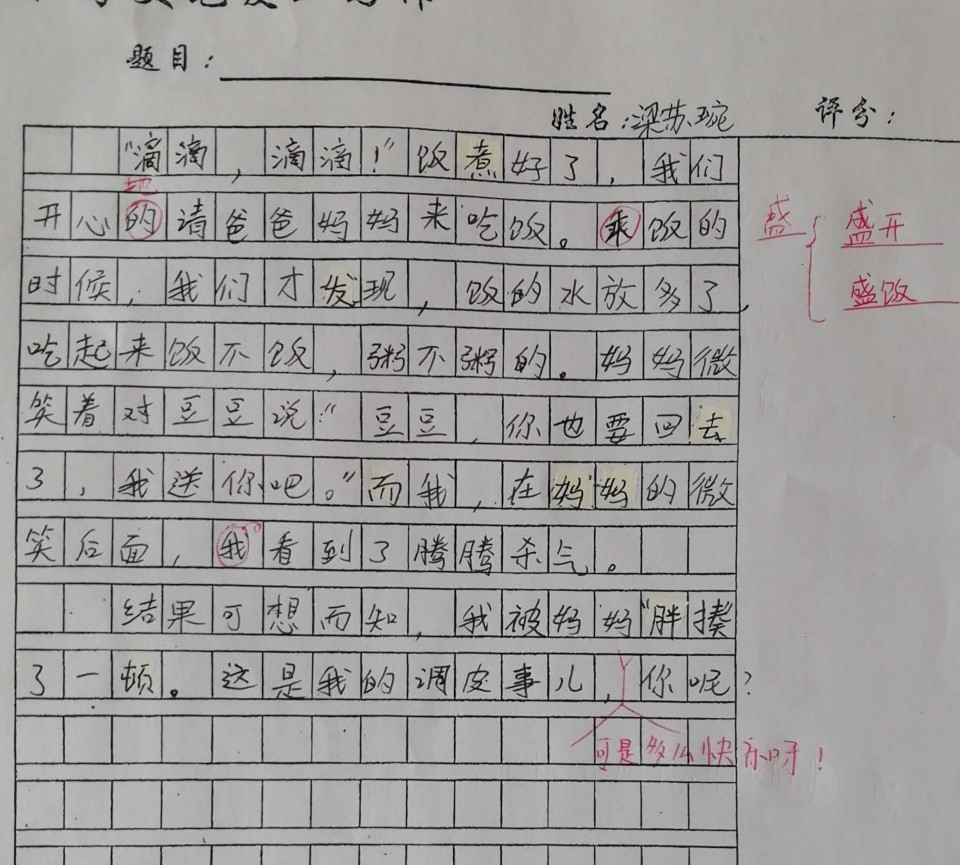 题目：
姓名：梁苏琬
评分：
"滴滴，滴滴！"饭煮好了，我们
地
开心的请爸爸妈妈来吃饭。乘饭的
盛
盛开
盛饭
时候，我们才发现，饭的水放多了，
吃起来饭不饭，粥不粥的。妈妈微
笑着对豆豆说："豆豆，你也要回去
了，我送你吧。"而我，在妈妈的微
笑后面，我看到了腾腾杀气。
结果可想而知，我被妈妈"胖揍
了一顿。这是我的调皮事儿，你呢？
可是多么快乐呀！